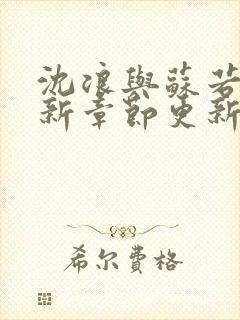 沈浪與蘇若
新章節更新
希尔费格